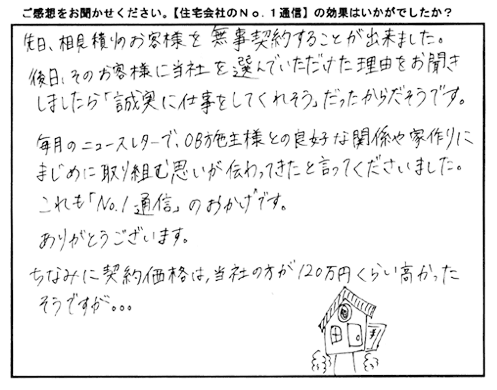 ご感想をお聞かせください。【住宅会社のNo.1通信】の効果はいかがでしたか？
先日、相見積りのお客様を無事契約することが出来ました。
後日、そのお客様に当社を選んでいただけた理由をお聞き
しましたら「誠実に仕事をしてくれそう」だったからだそうです。
毎月のニュースレターで、OB施主様との良好な関係や家作りに
まじめに取り組む思いが伝わってきたと言ってくださいました。
これも「No.1通信」のおかげです。
ありがとうございます。
ちなみに契約価格は、当社の方が120万円くらい高かった
そうですが...